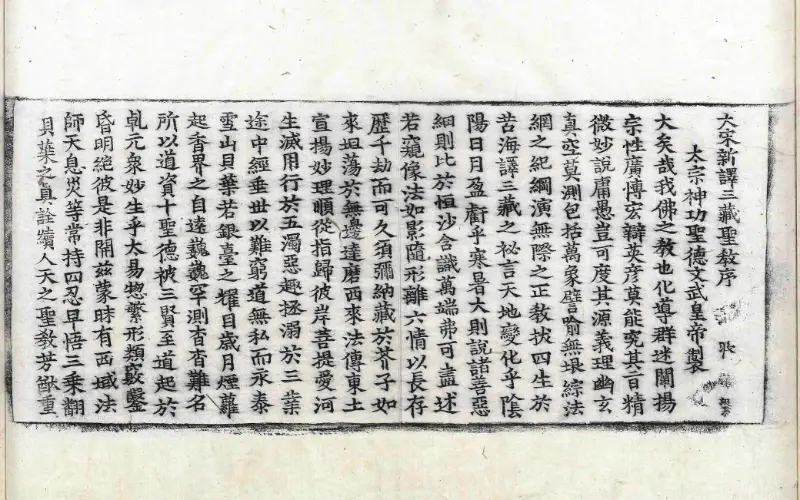 大宋新譯三藏聖教序
太宗神功聖德文武皇帝製
大矣哉我佛之教也化導群迷闡揚
宗性廣博宏辯英彦莫能究其旨精
微妙說庸愚豈可度其源義理幽玄
真空莫測包括萬象譬喻無垠綜法
網之紀綱演無際之正教拔四生於
苦海譯三藏之祕言天地變化乎陰
陽日月盈虧乎寒暑大則說諸善惡
細則比於恒沙含識萬端弗可盡述
若窺像法如影隨形離六情以長存
歷千劫而可久須彌納藏於芥子如
來坦蕩於無邊達磨西來法傳東土
宣揚妙理順從指歸彼岸菩提愛河
生滅用行於五濁惡趣拯溺於三業
途中經垂世以難窮道無私而永泰
雪山貝葉若銀臺之耀目歲月煙蘿
起香界之自遠巍巍罕測杳杳難名
所以道資十聖德被三賢至道起於
乹元衆妙生乎太易惣繁形類竅鑿
昏明絕彼是非開茲蒙昧有西域法
師天息災等常持四忍早悟三乘翻
貝葉之真詮續人天之聖教芳猷重